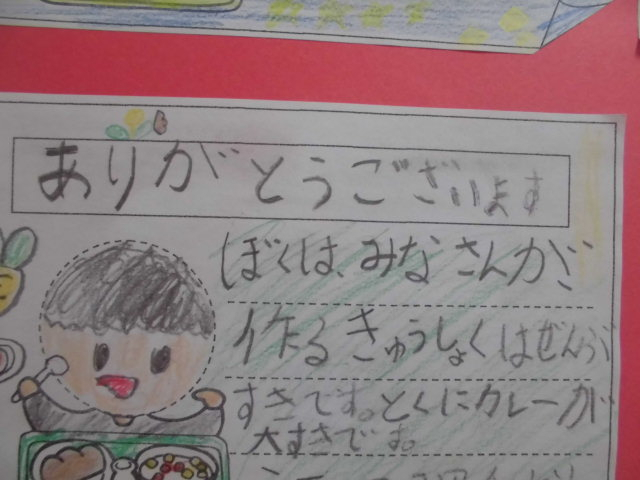 ありがとうございます
ぼくは、みなさんが
作るきゅうしょくはぜんぶ
すきです。とくにカレーが
大すきです。